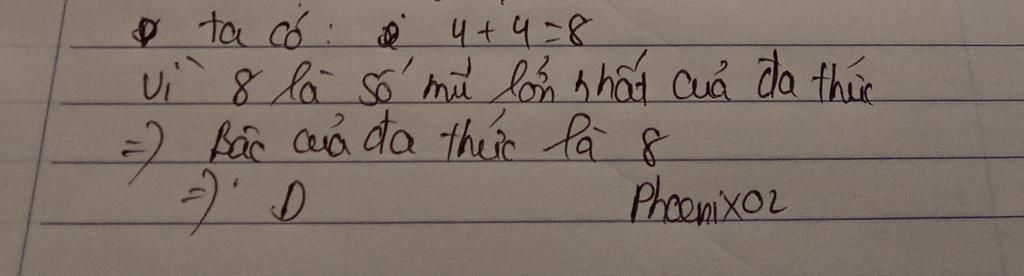 ta có: 4 + 4 = 8
Vì 8 là số mũ lớn nhất cuả đa thức
=> Bậc cuả đa thức là 8
=> D PhoenixO2